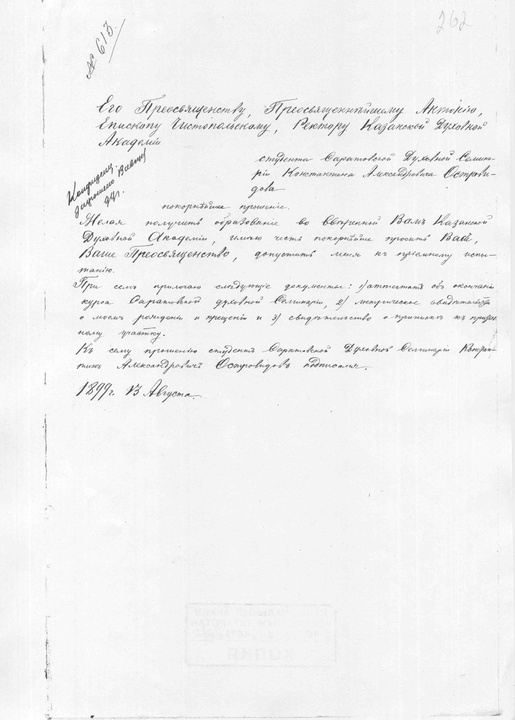 № 613.
262
Его Преосвященству, Преосвященнѣйшему Антонію,
Епископу Чистопольскому, Ректору Казанской Духовной
Академіи
студента Саратовской Духовной Семина-
ріи Константина Александровича Острови-
дова
покорнѣйшее прошеніе.
Желая получить образованіе во ввѣренной Вамъ Казанской
Духовной Академіи, имѣю честь покорнѣйше просить Васъ,
Ваше Преосвященство, допустить меня къ пріемному испы-
танію.
При семъ прилагаю слѣдующіе документы: 1) аттестатъ объ окончаніи
курса Саратовской духовной Семинаріи, 2) метрическое свидѣтельство
о моемъ рожденіи и крещеніи и 3) свидѣтельство о припискѣ къ призыв-
ному участку.
Къ сему прошенію студентъ Саратовской Духовной Семинаріи Констан-
тинъ Александровичъ Островидовъ подписался.
1899 г. 13 Августа.
КОПИЯ